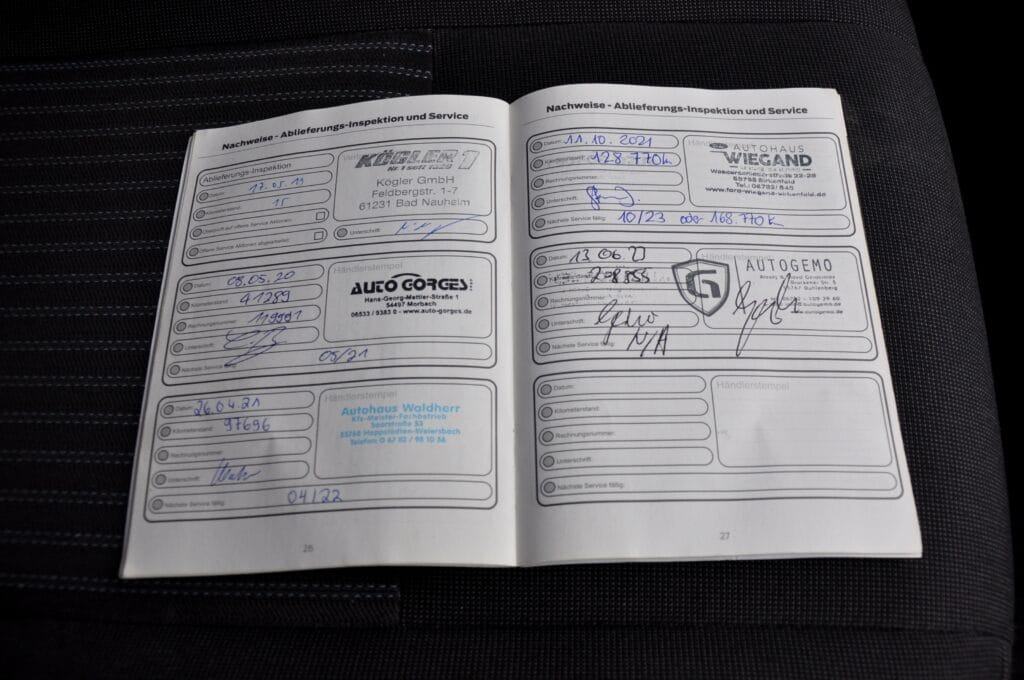 Nachweise - Ablieferungs-Inspektion und Service
Ablieferungs-Inspektion
Datum: 17.05.19
Kilometerstand: 15
Überprüft auf offene Service Aktionen:
Offene Service Aktionen abgearbeitet:
KÖGLER 1
Nr. 1 seit 1929
Kögler GmbH
Feldbergstr. 1-7
61231 Bad Nauheim
Unterschrift:
Datum: 08.05.20
Kilometerstand: 41289
Rechnungsnummer: 119991
Unterschrift:
Nächste Service fällig: 05/21
Händlerstempel
AUTO GORGES
Hans-Georg-Mettler-Straße 1
54497 Morbach
06533 / 9383 0 - www.auto-gorges.de
Datum: 26.04.21
Kilometerstand: 97696
Rechnungsnummer:
Unterschrift:
Nächste Service fällig: 04/22
Händlerstempel
Autohaus Waldherr
Kfz-Meister-Fachbetrieb
Saarstraße 53
55768 Hoppstädten-Weiersbach
Telefon: 0 67 82 / 98 10 56
26
Nachweise - Ablieferungs-Inspektion und Service
Datum: 11.10.2021
Kilometerstand: 128.770k
Rechnungsnummer:
Unterschrift:
Nächste Service fällig: 10/23 oder 168.770k
AUTOHAUS
WIEGAND
55765 Birkenfeld
www.ford-wiegand-birkenfeld.de
Datum: 13.06.
Kilometerstand: 208855
Rechnungsnummer:
Unterschrift:
Nächste Service fällig: N/A
Händlerstempel
G
AUTOGEMO
www.autogemo.de
Datum:
Kilometerstand:
Rechnungsnummer:
Unterschrift:
Nächste Service fällig:
Händlerstempel
27